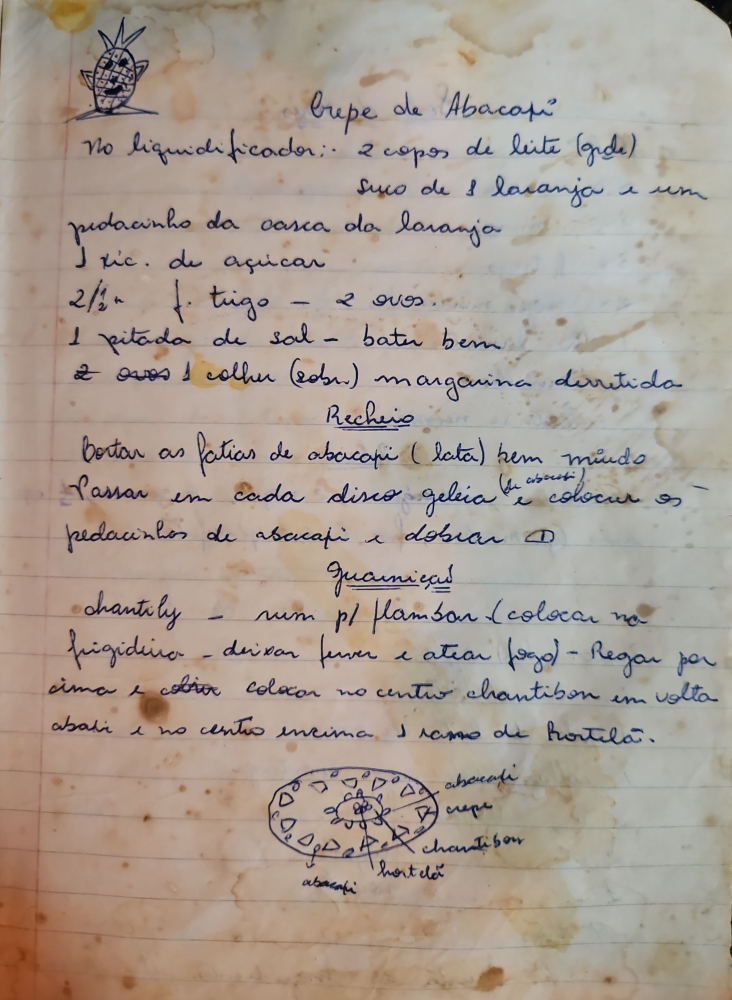 Crepe de Abacaxi
No liquidificador:. 2 copos de leite (gde)
suco de 1 laranja e um
pedacinho da casca da laranja
1 xic. de açúcar
2/½ " f. trigo - 2 ovos.
1 pitada de sal - bater bem
2 ovos 1 colher (sobr.) margarina derretida
Recheio
Cortar as fatias de abacaxi (lata) bem miúdo
Passar em cada disco geleia (de abacaxi) e colocar os
pedacinhos de abacaxi e dobrar
Guarnição
chantily - rum p/ flambar (colocar na
frigideira - deixar ferver e atear fogo) - Regar por
cima e cobrir colocar no centro chantibon em volta
abaxi e no centro encima 1 ramo de hortelã.
abacaxi
crepe
chantibon
hortelã
abacaxi